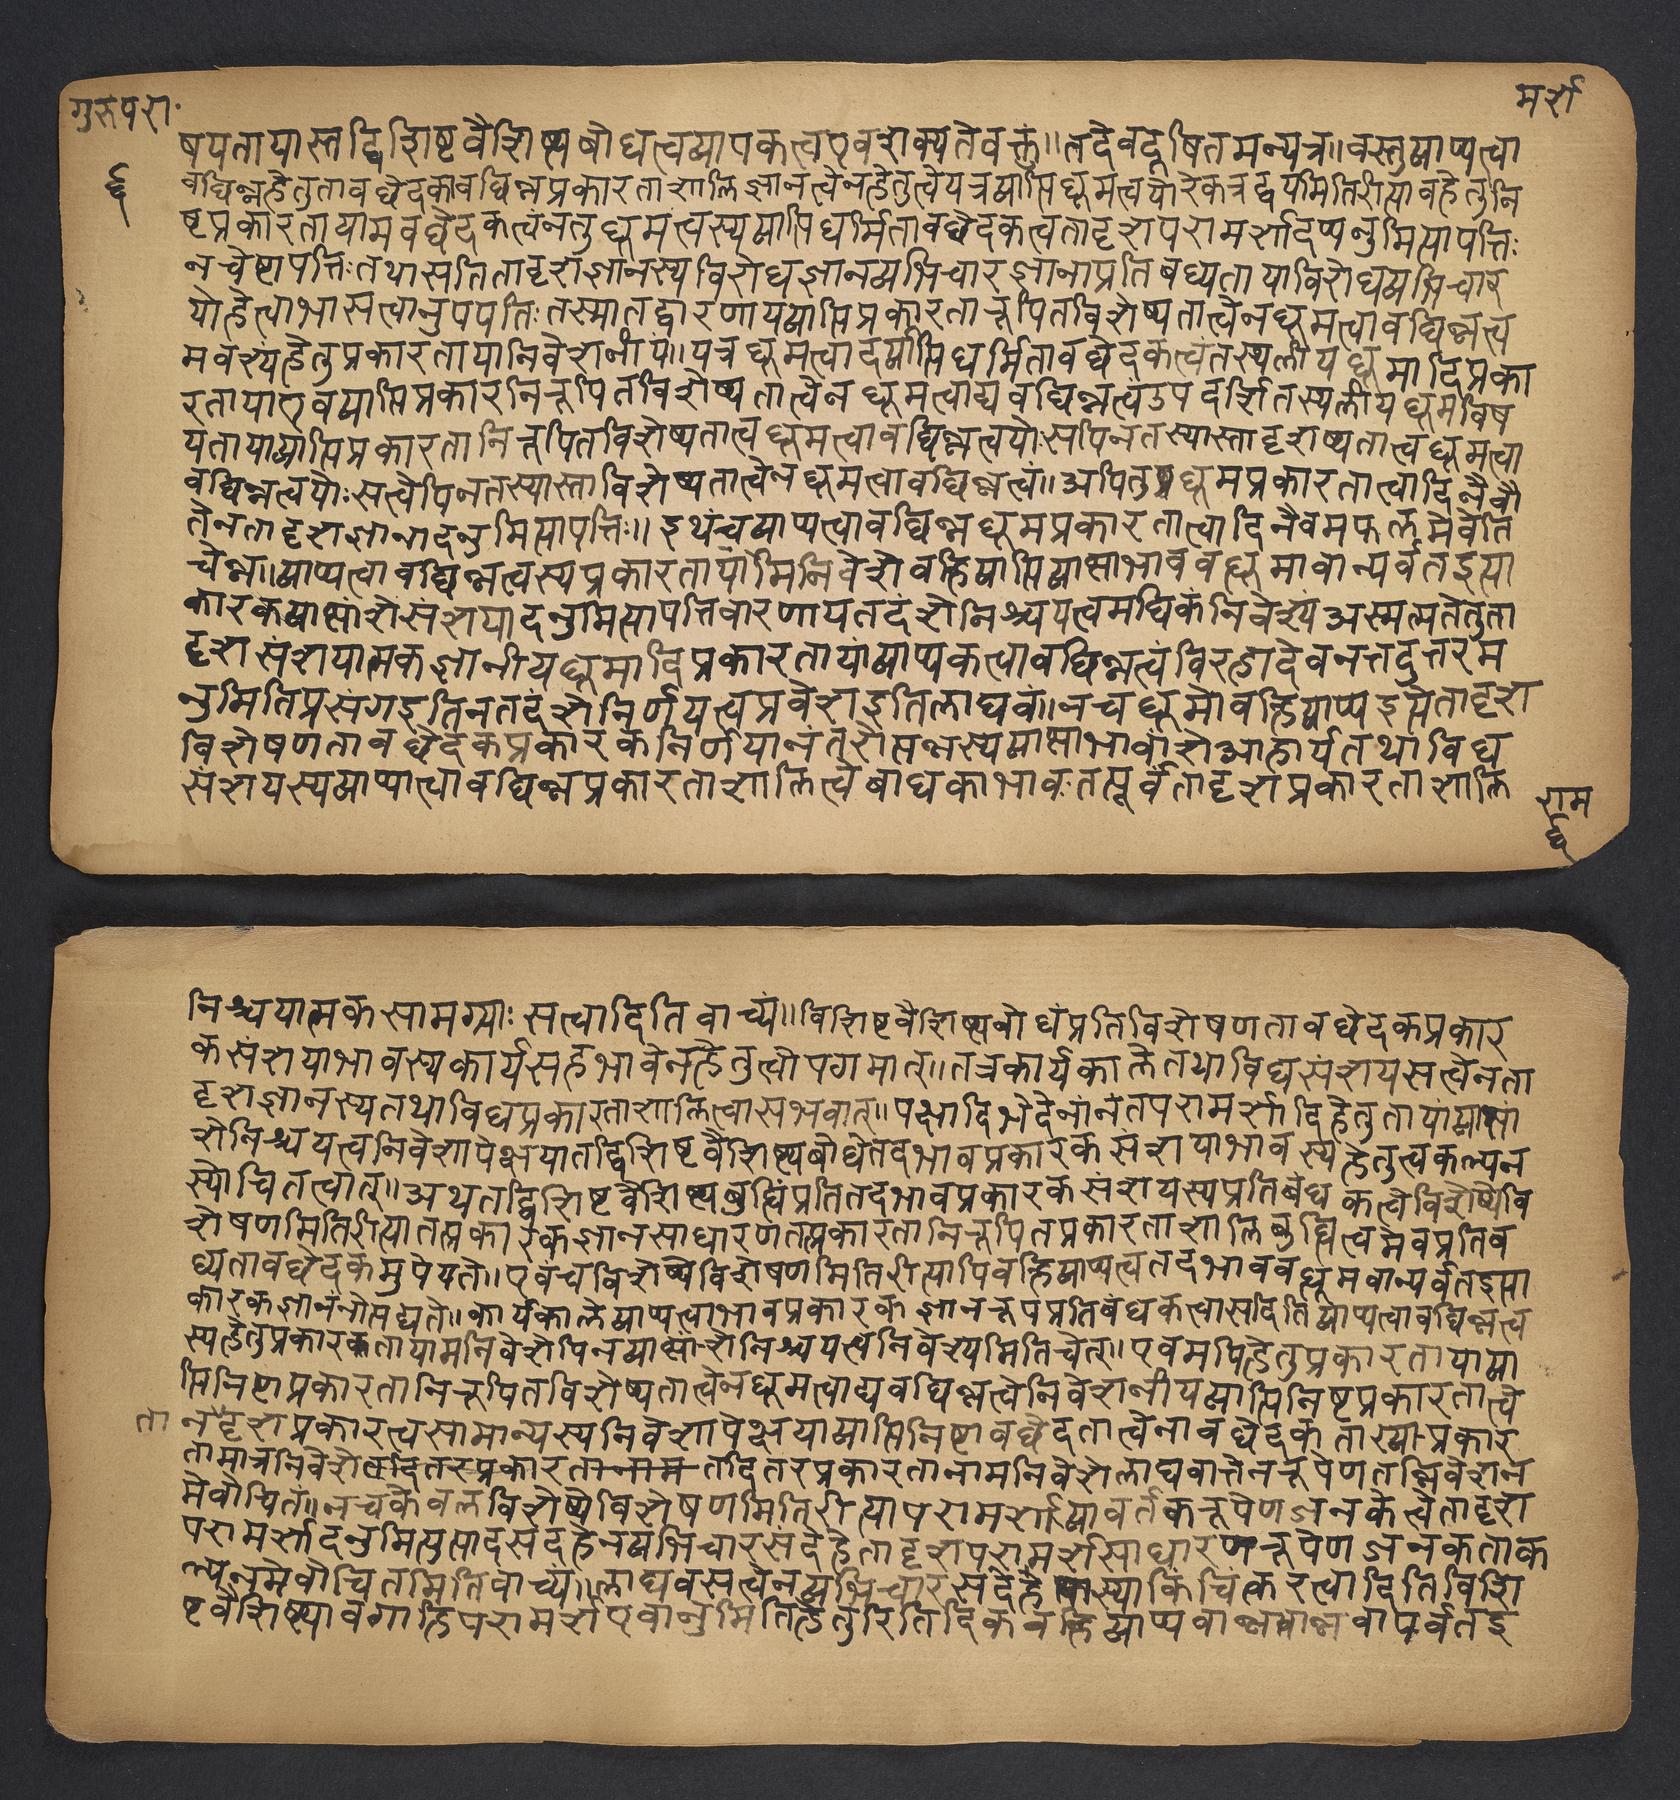 गुरुपरा॰
मर्श
६
षयतायास्तद्विशिष्टवैशिष्ट्यबोधत्वव्यापकत्वएवशक्यतेवक्तुं॥तदेवदूषितमन्यत्र॥वस्तुव्याप्यत्वा
वछिन्नहेतुतावछेदकावछिन्नप्रकारताशालिज्ञानत्वेनहेतुत्वेयत्रव्याप्तिधूमत्वयोरेकत्रद्वयमितिरीत्यावहेतुनि
ष्टप्रकारतायामवछेदकत्वंनतुधूमत्वस्यव्याप्तिधर्मितावछेदकत्वतादृशपरामर्शादप्यनुमित्यापत्तिः
नचेष्टापत्तिःतथासतितादृशज्ञानस्यविरोधज्ञानव्यभिचारज्ञानाप्रतिबध्यतायाविरोधव्यभिचार
योर्हेत्वाभासत्वानुपपत्तिःतस्मातद्वारणायव्याप्तिप्रकारतानिरूपितविशेष्यतात्वेनधूमत्वावछिन्नत्व
मवश्यंहेतुप्रकारतायानिवेशनीयं॥यत्रधूमत्वादर्व्याप्तिधर्मितावछेदकत्वंतस्यलीयधूमादिप्रका
रतायाएवव्याप्तिप्रकारनिरूपितविशेष्यतात्वेनधूमत्वाद्यवछिन्नत्वंउपदर्शितस्यलीयधूमविष
यतायाव्याप्तिप्रकारतानिरूपितविशेष्यतात्वधूमत्वावछिन्नत्वयोःसपिनतस्यास्तादृशष्यतात्वधूमत्वा
वछिन्नत्वयोःसत्वेपिनतस्यास्ताविशेष्यतात्वेनधूमत्वावछिन्नत्वं॥अपितुधूमप्रकारतात्वादिनैवौ
तेनतादृशज्ञानादनुमित्यापत्तिः॥इथंचव्याप्यत्वावछिन्नधूमप्रकारतात्वादिनैवमफलमेवेति
चेन्न॥व्याप्यत्वावछिन्नत्वस्यप्रकारतायामिनिवेशेवह्निव्याप्तिव्याप्ताभाववधूमावान्पर्वतइत्या
कारकव्याप्तांशेसंशयादनुमित्यापत्तिवारणायतदंशेनिश्चयत्वमधिकंनिवेश्यंअस्मत्मतेतुता
दृशसंशयात्मकज्ञानीयधूमादिप्रकारतायांव्याप्यकत्वावछिन्नत्वंविरहादेवनत्तदुत्तरम
नुमितिप्रसंगइतिनतदंशेनिर्णयत्वप्रवेशइतिलाघवं॥नचधूमोवह्निव्याप्यइत्येतादृश
विशेषणतावछेदकप्रकारकनिर्णयानंतरोत्पन्नस्यव्याप्ताभावांशेआहार्यतथाविध
संशयस्यव्याप्यात्वावछिन्नप्रकारताशालित्वेबाधकाभावःतत्पूर्वंतादृशप्रकारताशालि
राम
६
निश्चयात्मकसामग्र्याःसत्वादितिवाच्यं॥विशिष्टवैशिष्ट्यबोधंप्रतिविशेषणतावछेदकप्रकार
कसंशयाभावस्यकार्यसहभावेनहेतुत्वोपगमात्॥तत्रकार्यकालेतथाविधसंशयसत्वेनता
दृशज्ञानस्यतथाविधप्रकारताशालित्वासंभवात्॥पक्षादिभेदेनानंतपरामर्शादिहेतुतायांव्याप्तां
शेनिश्चयत्वनिवेशापेक्षयातद्विशिष्टवैशिष्ट्यबोधेतदभावप्रकारकसंशयाभावस्यहेतुत्वकल्पन
स्योचितत्वात्॥अथतद्विशिष्टवैशिष्ट्यबुद्धिंप्रतितदभावप्रकारकसंशयस्यप्रतिबंधकत्वेविशेष्येवि
शेषणमितिरीत्यातत्प्रकारकज्ञानसाधारणतत्प्रकारतानिरूपितप्रकारताशालिबुधित्वमेवप्रतिब
ध्यतावछेदकमुपेयते॥एवंचविशेष्येविशेषणमितिरीत्यापिवह्निव्याप्यत्वतदभाववधूमवान्पर्वतइत्या
कारकज्ञानंनोत्पद्यते॥कार्यकालेव्याप्यत्वाभावप्रकारकज्ञानरूपप्रतिबंधकत्वासदितिव्याप्यत्वावछिन्नत्व
स्यहेतुप्रकारकतायामनिवेशेपिनव्याप्तांशेनिश्चयत्वनिवेश्यमितिचेत्॥एवमपिहेतुप्रकारतायाव्या
प्तिनिष्टाप्रकारतानिरूपितविशेष्यतात्वेनधूमत्वाद्यवछिन्नत्वेनिवेशनीयव्याप्तिनिष्टप्रकारतात्वे
ता नदृशप्रकारत्वसामान्यस्यनिवेशापेक्षयाव्याप्तिनिष्टावछेदतात्वेनावछेदकताख्याप्रकार
तामात्रनिवेशेतदितरप्रकारतानामतदितरप्रकारतानामनिवेशेलाघवात्तेनरूपेणतन्निवेशन
मेवोचितं॥नचकेवलविशेष्येविशेषणमितिरीत्यापरामर्शव्यावर्तकरूपेणजनकत्वेतादृश
परामर्शादनुमित्युत्पादसंदेहेनव्यभिचारसंदेहेतादृशपरामर्शसाधारणरूपेणजनकताक
ल्पनमेवोचितमितिवाच्यं॥लाघवसत्वेनव्यभिचारसंदेहेस्याकिंचित्करत्वादितिविशि
ष्टवैशिष्ट्यावगाहिपरामर्शएवानुमितिहेतुरितिदिक्वह्निव्याप्यवान्नवान्नवापर्वतइ